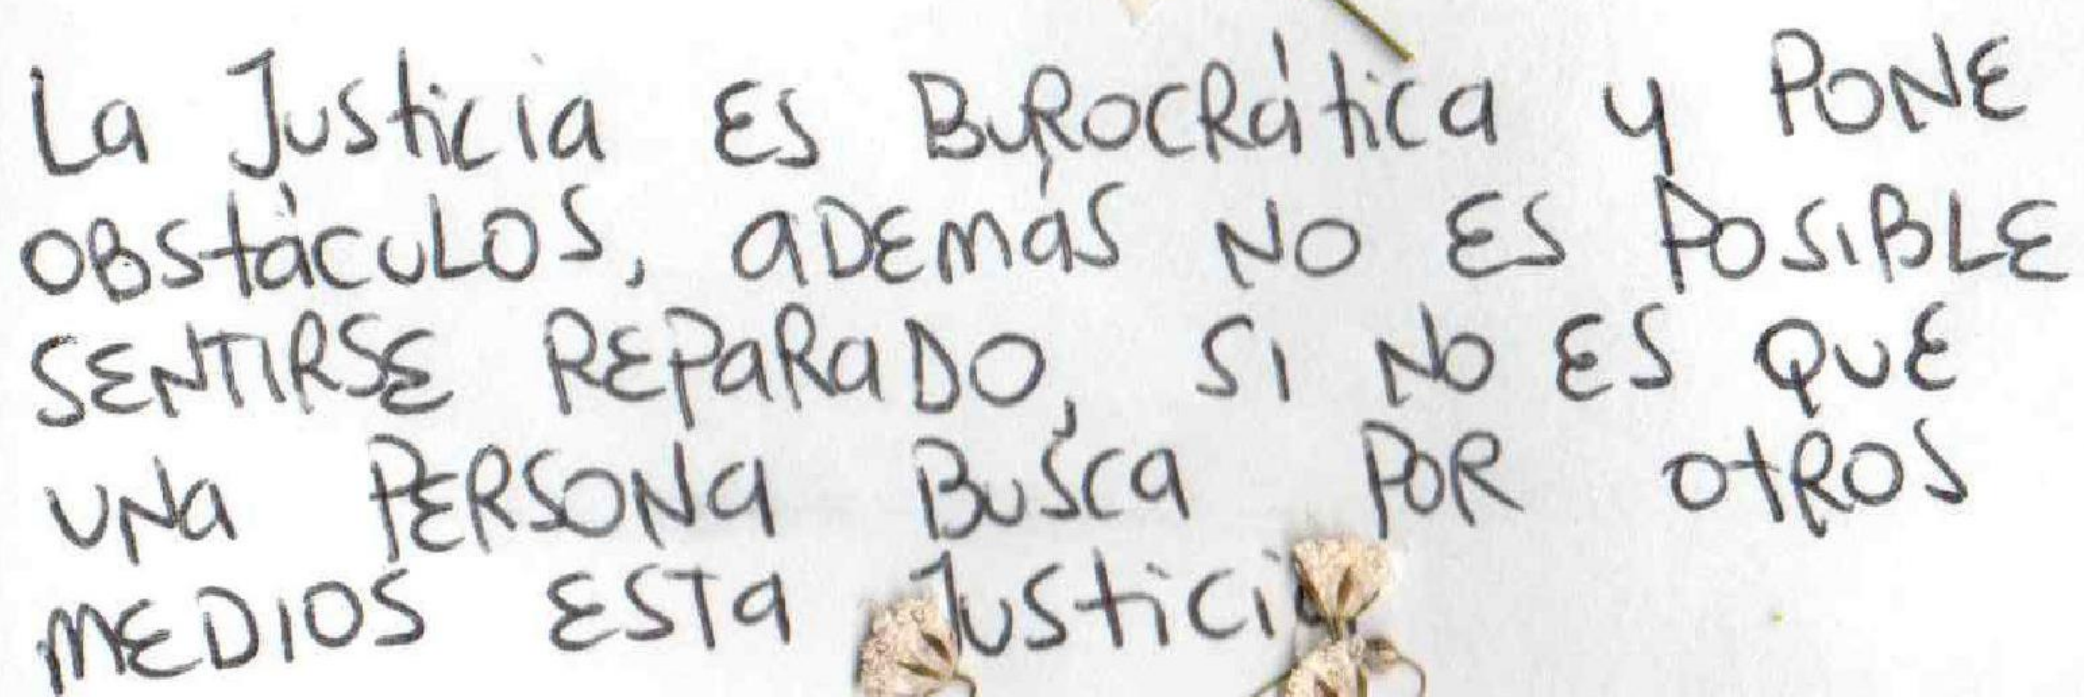 La Justicia ES BUROCRática y PONE
OBStáCULOS, aDEmás NO ES POSiBLE
SENTIRSE REPaRaDO, Si NO ES QUE
UNa PERSONa BUSca POR OtROS
MEDIOS ESTa Justicia